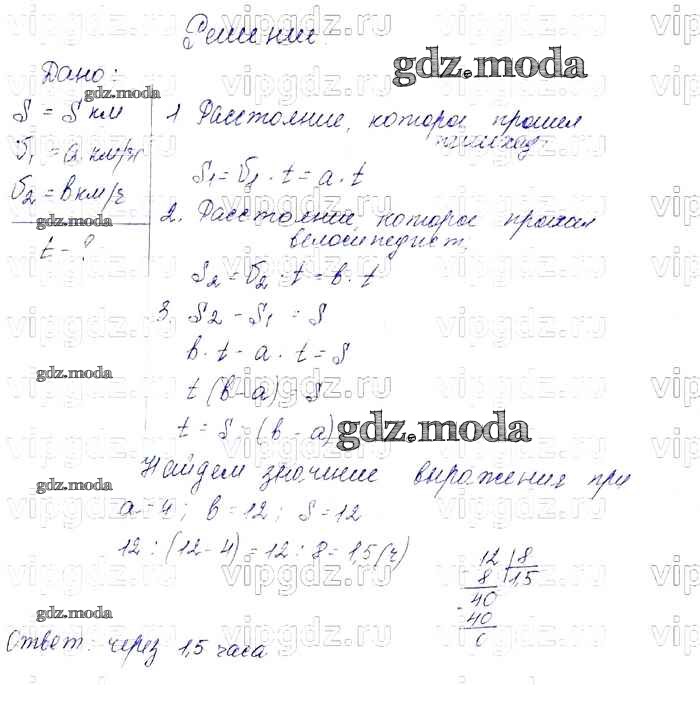 Решение
gdz.moda
Дано:
gdz.moda
S = S км
V₁ = а км/ч
V₂ = в км/ч
t - ?
1. Расстояние, которое прошел
пешеход
S₁ = V₁ · t = a · t
2. Расстояние, которое проехал
велосипедист,
S₂ = V₂ · t = в · t
3. S₂ - S₁ = S
в · t - a · t = S
gdz.moda
t (в - a) = S
t = S : (в - a)
gdz.moda
Найдем значение выражения при
gdz.moda
a = 4; в = 12; S = 12
12 : (12 - 4) = 12 : 8 = 1,5 (ч)
12 | 8
8 | 1,5
40
40
0
gdz.moda
Ответ: через 1,5 часа
vipgdz.ru